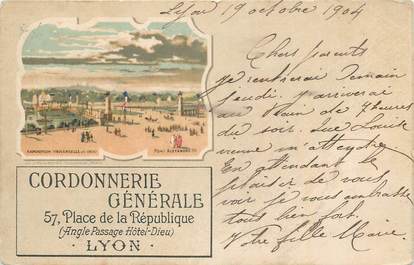 Lyon 19 octobre 1904
Chers parents
je rentrerai demain
jeudi. J'arriverai
au train de 7 heures
du soir. Que Louise
vienne m'attendre
En attendant le
plaisir de vous
voir je vous embrasse
tous bien fort.
Votre fille Marie.
EXPOSITION UNIVERSELLE DE 1900
PONT ALEXANDRE III
CORDONNERIE
GÉNÉRALE
57, Place de la République
(Angle Passage Hôtel-Dieu)
LYON